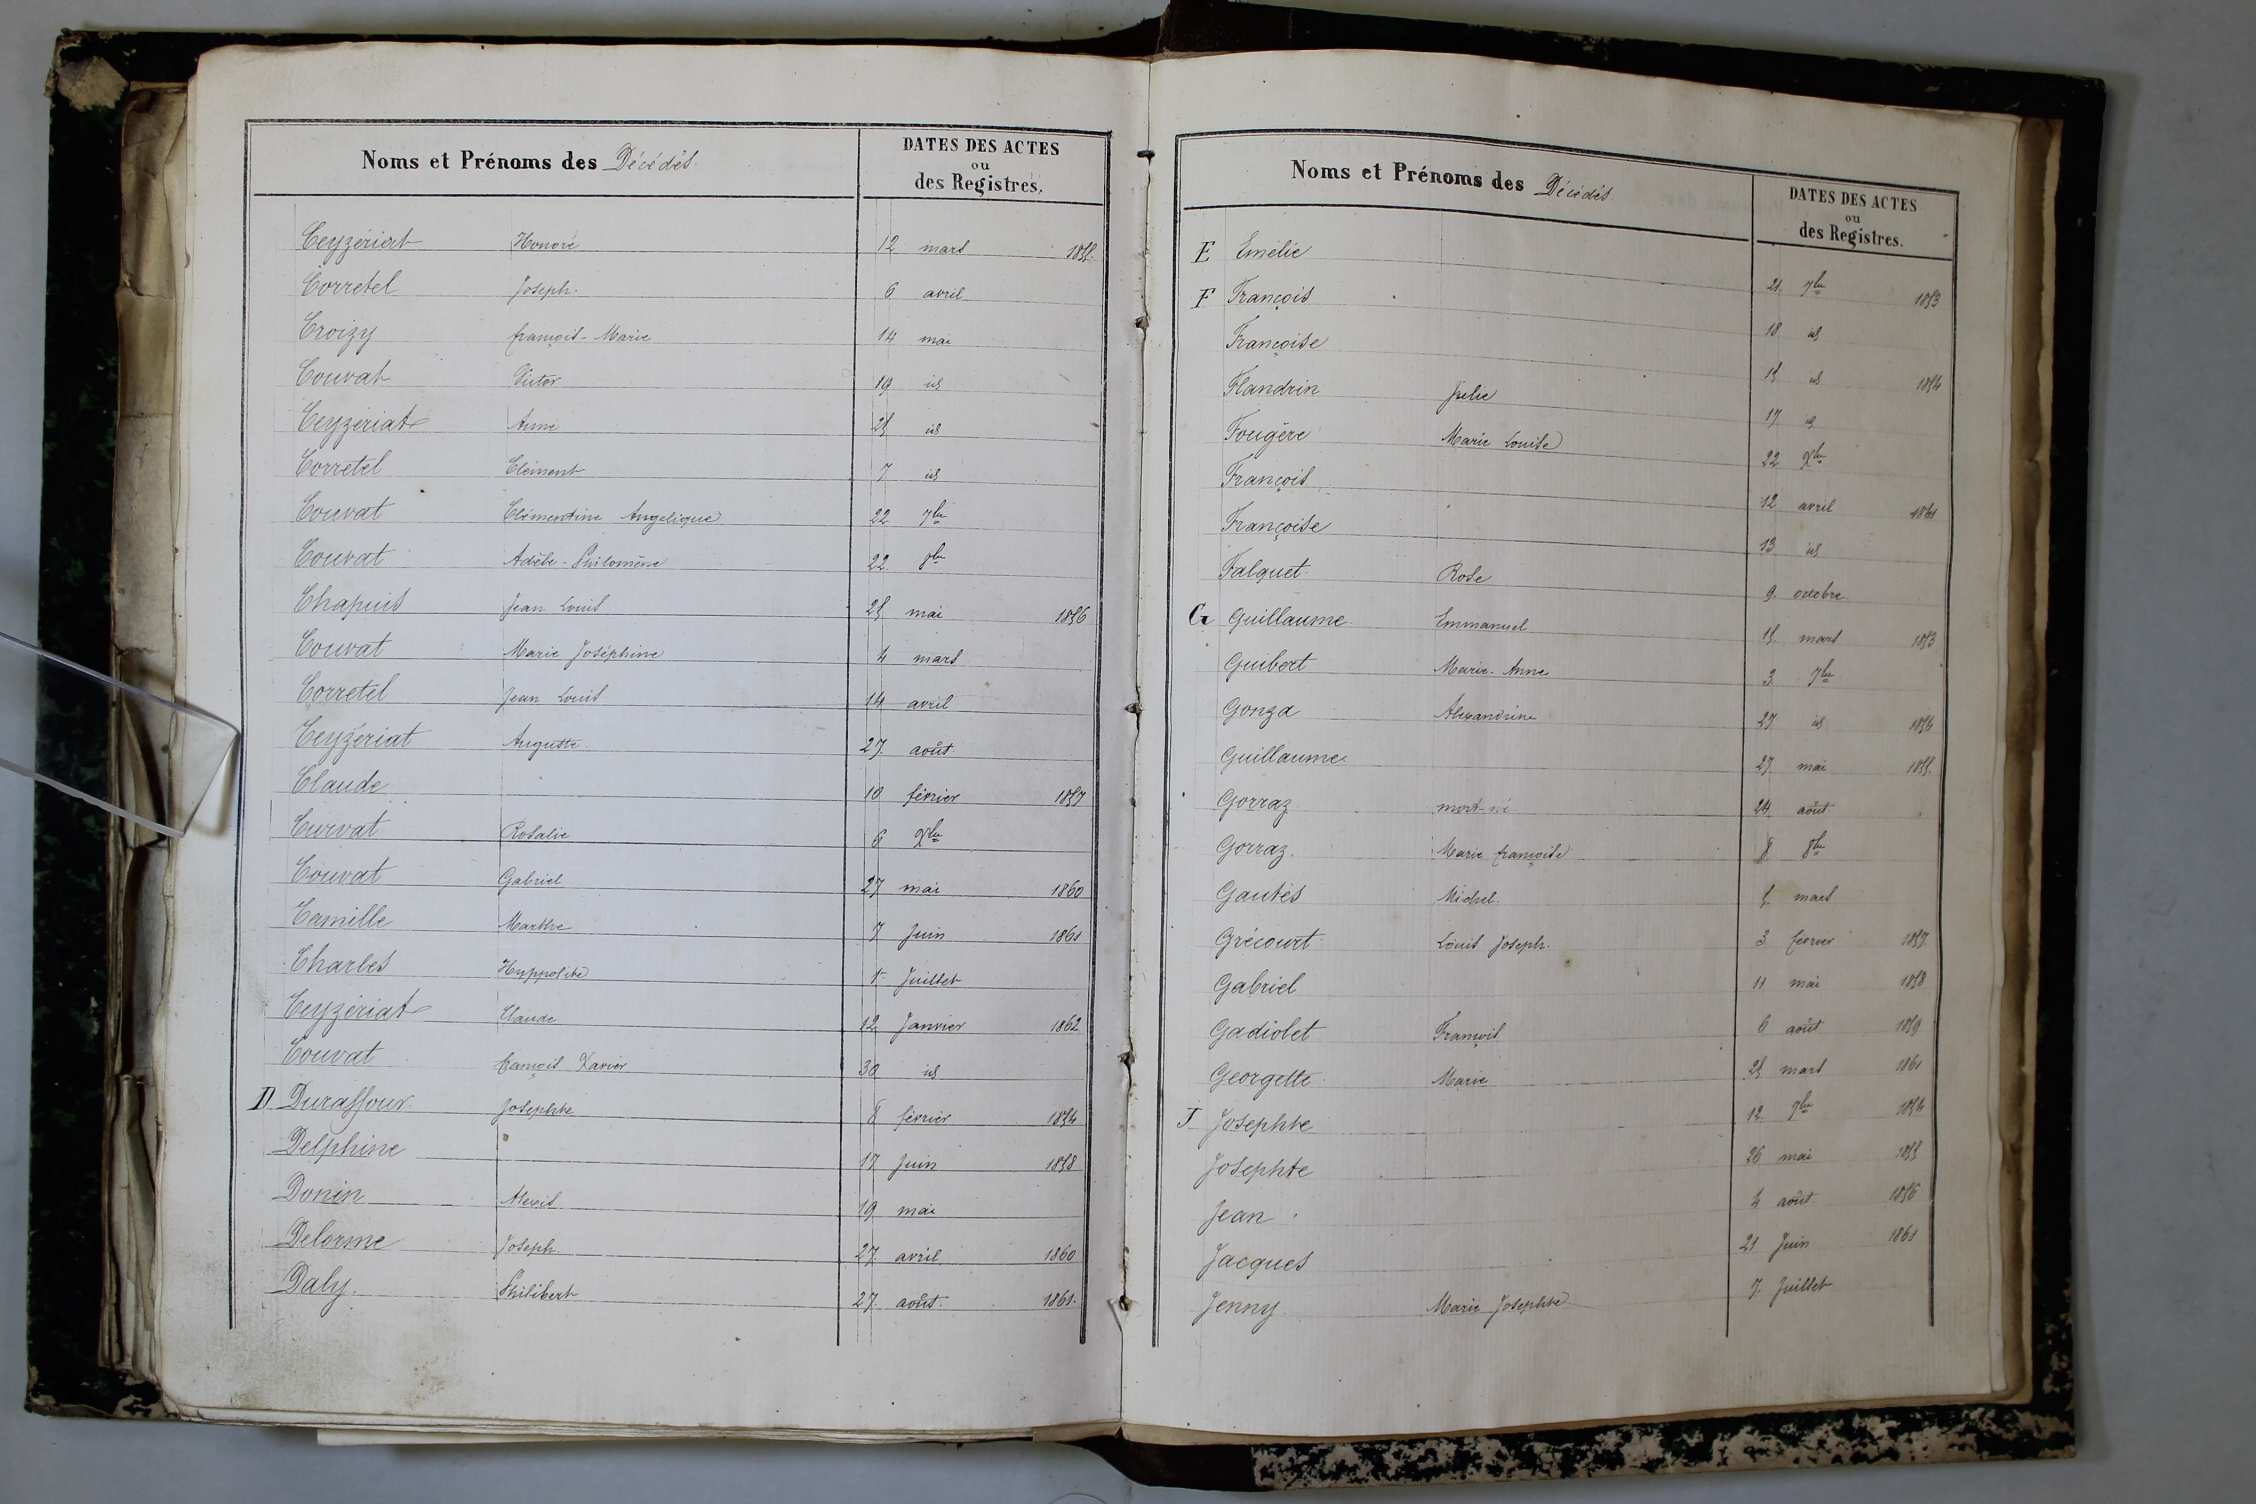 Noms et Prénoms des Décédés
DATES DES ACTES
ou
des Registres.
Ceyzériat Honoré 12 mars 1855.
Corretel Joseph. 6 avril
Croizy françois-Marie 14 mai
Couvat Victor 19 id
Ceyzériat Aimé 25 id
Corretel Clément 7 id
Couvat Clémentine Angelique 22 7bre
Couvat Adèle-Philomène 22 8bre
Chapuis Jean Louis 25 mai 1856
Couvat Marie Joséphine 4 mars
Corretel Jean Louis 14 avril
Ceyzériat Auguste. 27 août.
Claude 10 février 1857
Curvat Rosalie 6 Xbre
Couvat Gabriel 27 mai 1860
Camille Marthe 7 Juin 1861
Charles Hyppolite 1er Juillet
Ceyzériat Claude 12 Janvier 1862
Couvat françois Xavier 30 id
D Duraffour. Josephte 8 février 1854
Delphine 17 Juin 1858
Donin Alexis 19 mai
Delorme Joseph 27 avril 1860
Daly. Philibert 27. août. 1861.
Noms et Prénoms des Décédés
DATES DES ACTES
ou
des Registres.
E Emélie 21. 7bre 1853
F François 18 id
Françoise 15 id 1854
Flandrin Julie 17. id
Fougère Marie Louise 22 Xbre
François 12 avril 1861
Françoise 13 id
Falquet Rose 9. octobre
G Guillaume Emmanuel 15. mars 1853
Guibert Marie-Anne 3 7bre
Gonza Alexandrine 27 id 1854
Guillaume 27. mai 1855.
Gorraz mort-né 24. août
Gorraz. Marie françoise 8 8bre
Gautés Michel. 5. mars
Grécourt Louis Joseph. 3 fevrier 1857.
Gabriel 11 mai 1858
Gadiolet François 6 août 1859
Georgette Marie 25 mars 1861
J Josephte 12 7bre 1854
Josephte 26 mai 1855
Jean 4 août 1856
Jacques 21 Juin 1861
Jenny Marie Josephte 7. Juillet